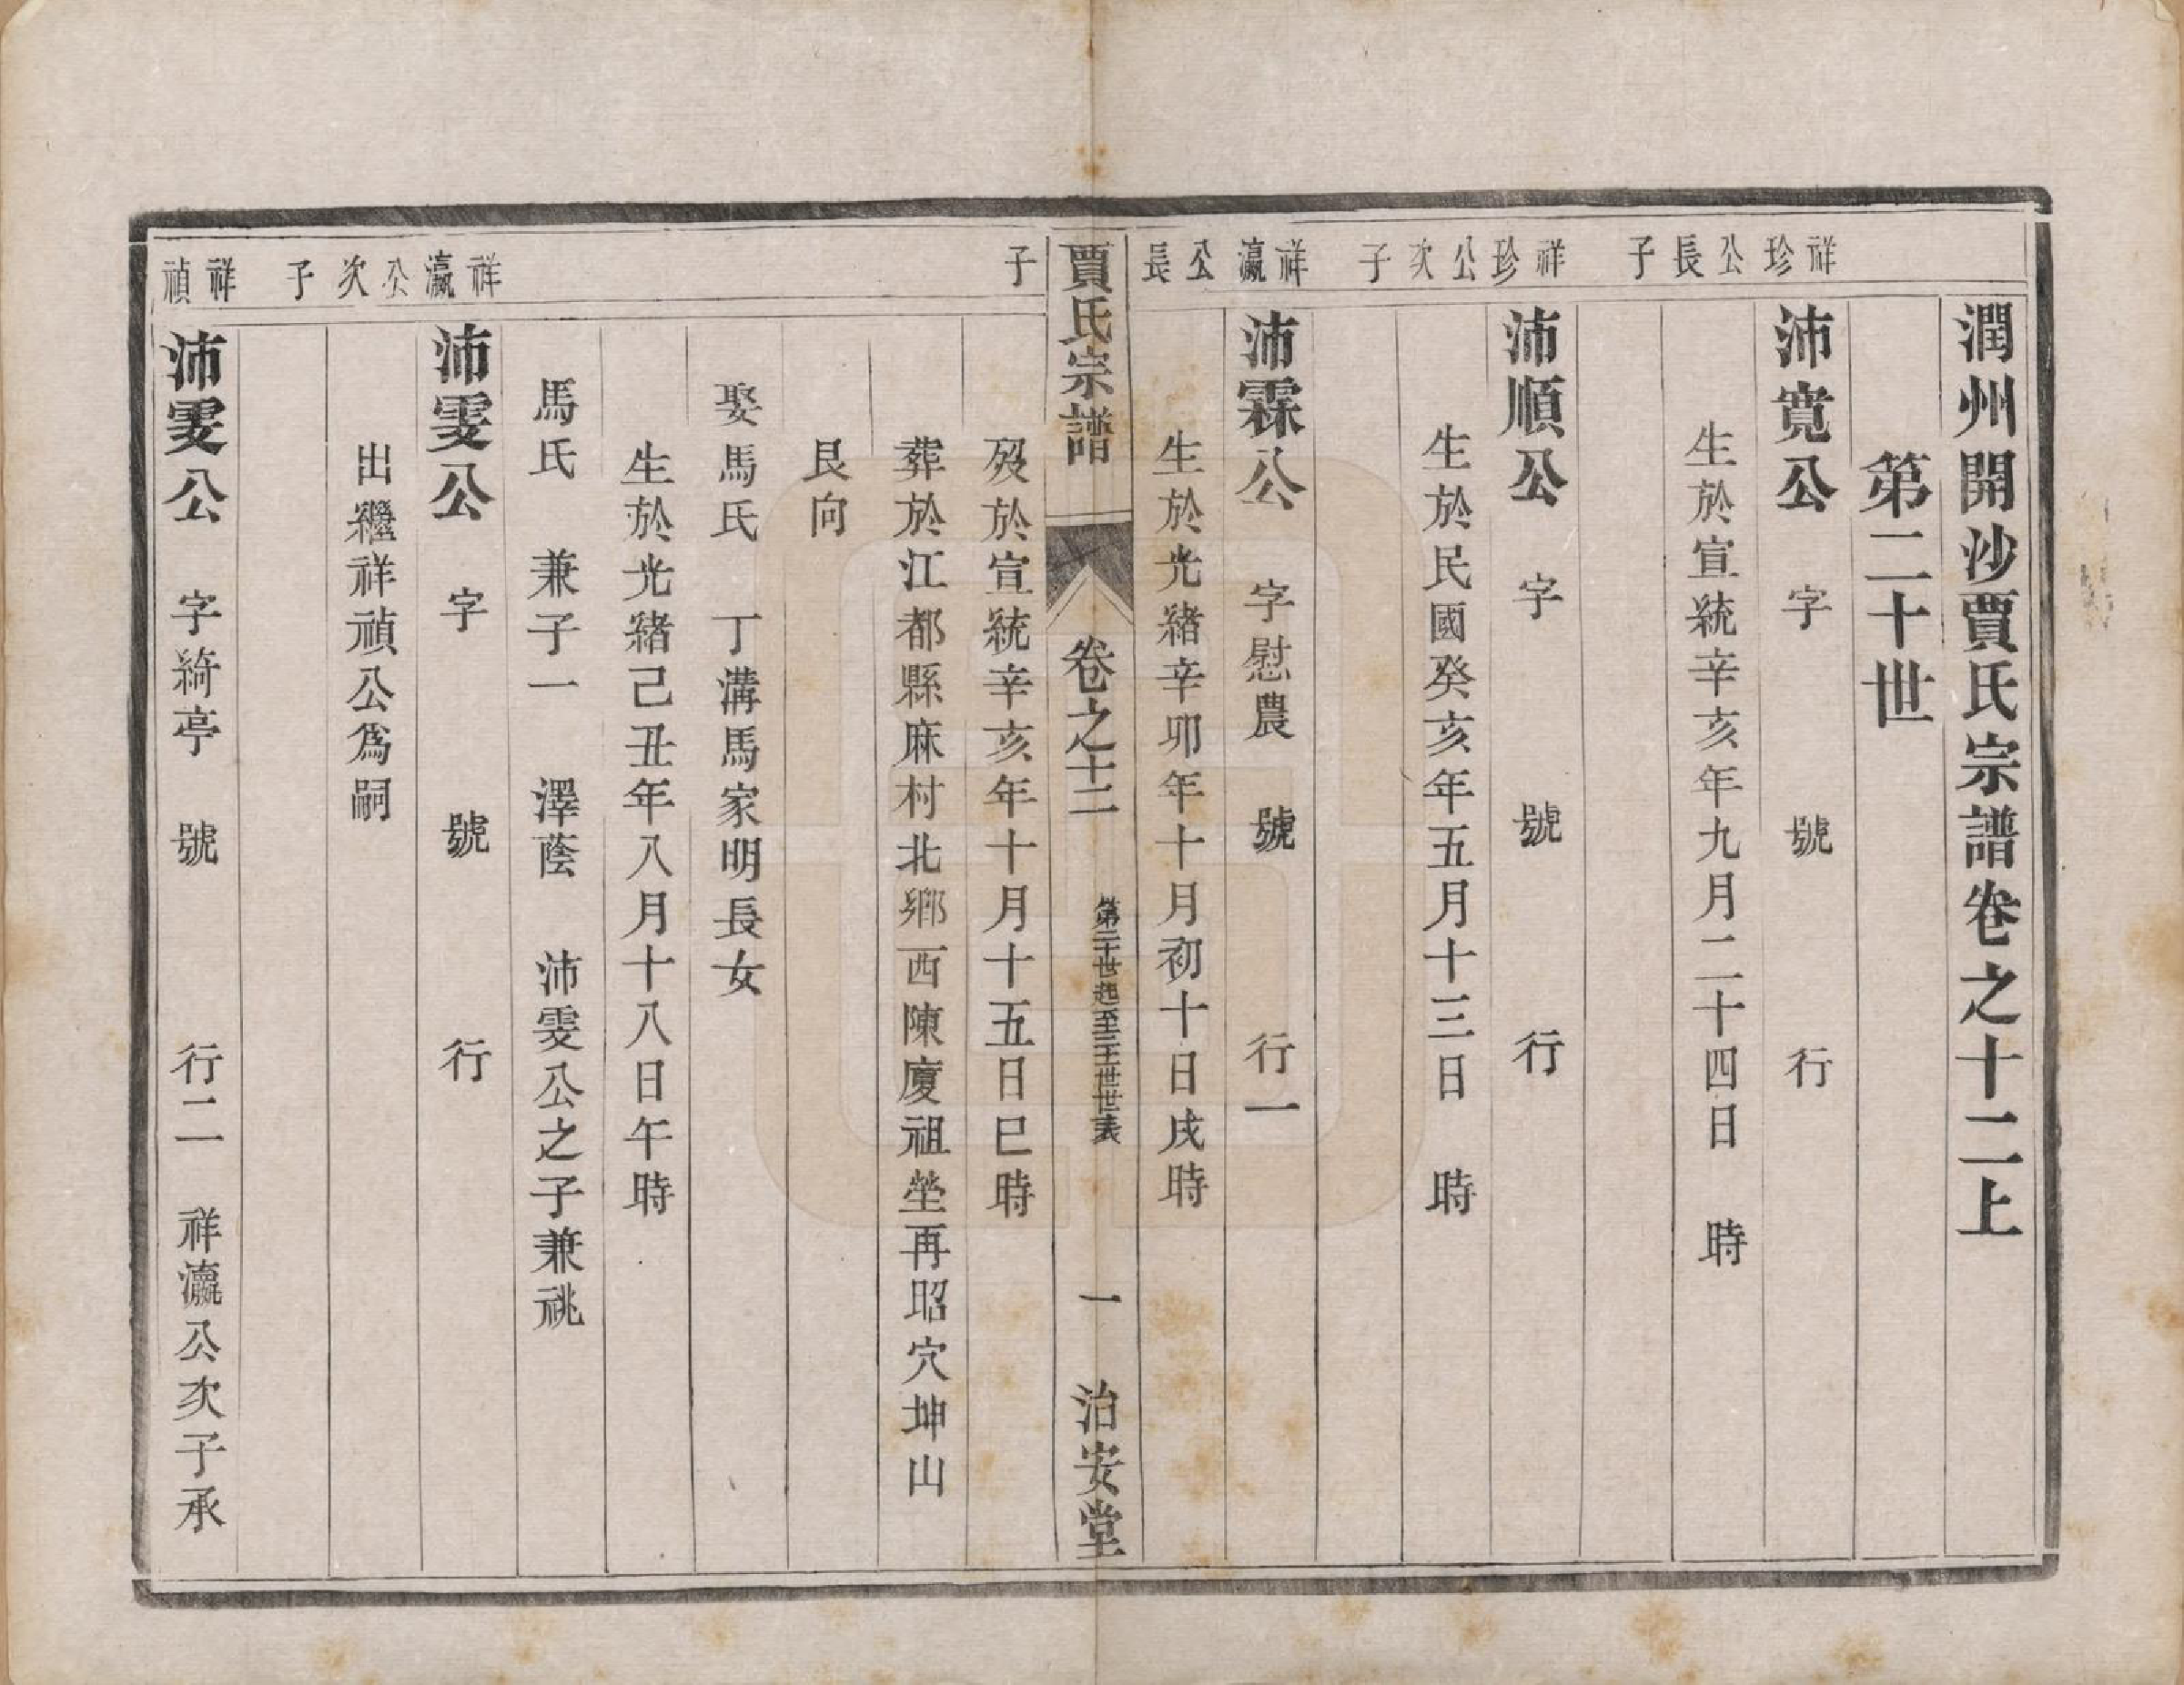 潤州開沙賈氏宗譜卷之十二上
第二十世
祥珍公長子
沛寬公 字 號 行
生於宣統辛亥年九月二十四日 時
祥珍公次子
沛順公 字 號 行
生於民國癸亥年五月十三日 時
祥瀛公長子
沛霖公 字慰農 號 行一
生於光緒辛卯年十月初十日戌時
賈氏宗譜 卷之十二 第二十世起至二十三世世表 一 治安堂
歿於宣統辛亥年十月十五日巳時
葬於江都縣麻村北鄉西陳廈祖塋再昭穴坤山
艮向
娶馬氏 丁溝馬家明長女
生於光緒己丑年八月十八日午時
馬氏 兼子一 澤蔭 沛雯公之子兼祧
祥瀛公次子
沛雯公 字 號 行
出繼祥禎公為嗣
祥禎
沛雯公 字綺亭 號 行二 祥瀛公次子承